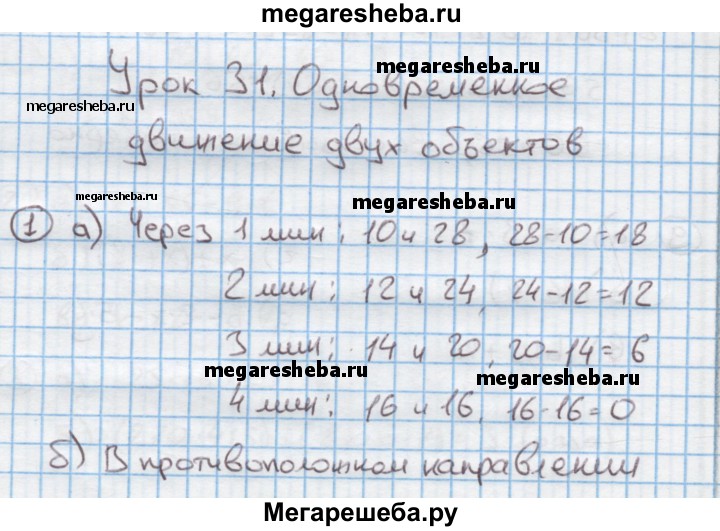 megaresheba.ru
Урок 31. Одновременное
megaresheba.ru
megaresheba.ru
движение двух объектов
megaresheba.ru
megaresheba.ru
1 а) Через 1 мин: 10 и 28, 28-10=18
2 мин: 12 и 24, 24-12=12
3 мин: 14 и 20, 20-14=6
megaresheba.ru
megaresheba.ru
4 мин: 16 и 16, 16-16=0
б) В противоположном направлении
Мегарешеба.ру